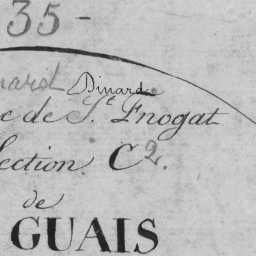 35 -
Dinard
de St Enogat
Section C2.
de
GUAIS